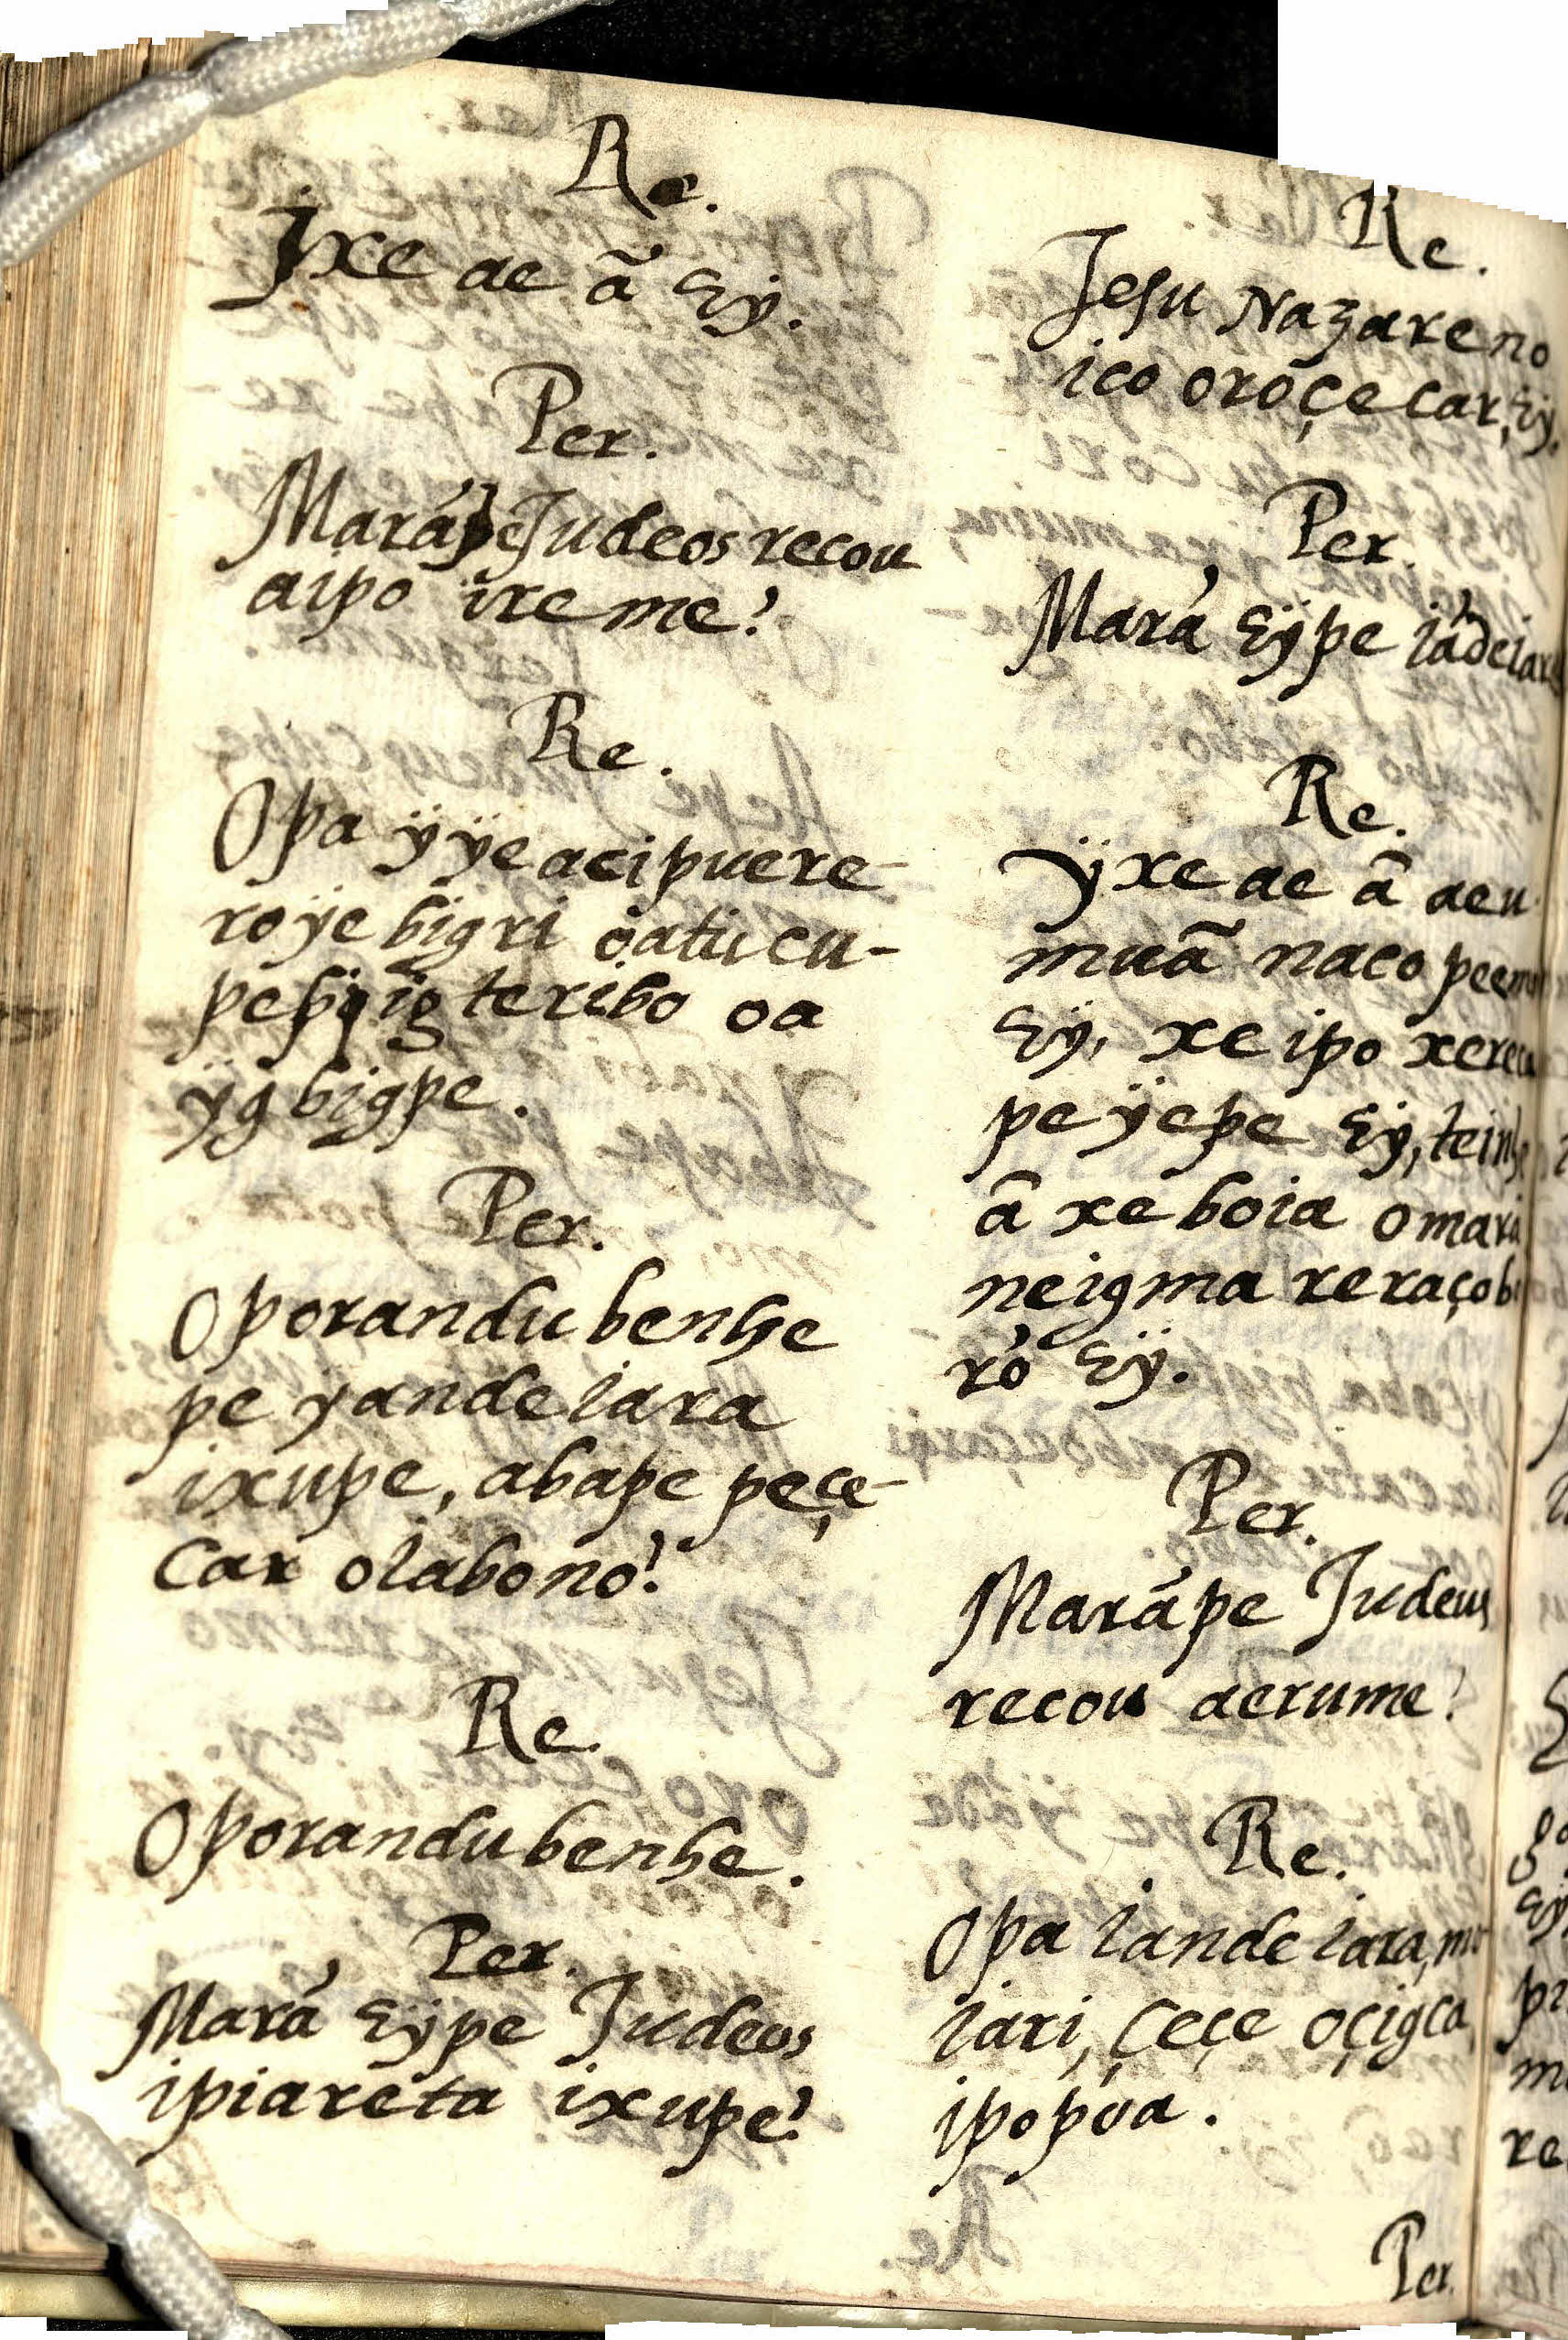 Re.
Ixe ae ã Eÿ.
Per.
Marápe Judeos recou
aipo ireme?
Re.
Opa ÿÿe acipuere-
roÿe bigri oatucu-
pebÿigteribo oa
ÿg bigpe.
Per.
Oporandu benhe
pe yande iara
ixupe, abape peçe-
car oiabono?
Re.
Oporandu benhe.
Per.
Mará Eÿpe Judeos
ipiareta ixupe?
Re.
Jesu Nazareno
ico oroçecar, Eÿ.
Per.
Mará Eÿpe
Re.
ÿxe ae ã aeu
muã naco
Eÿ, xe ipo
pe ÿepe Eÿ,
ã xe boia
neigma
ró Eÿ.
Per.
Marápe Judeus
recou aerume?
Re.
Opa iande iara,
iari, çeçe oçigca,
ipopúa.
Per.